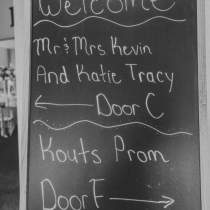 Welcome
Mr & Mrs Kevin
And Katie Tracy
← Door C
Kouts Prom
Door F →